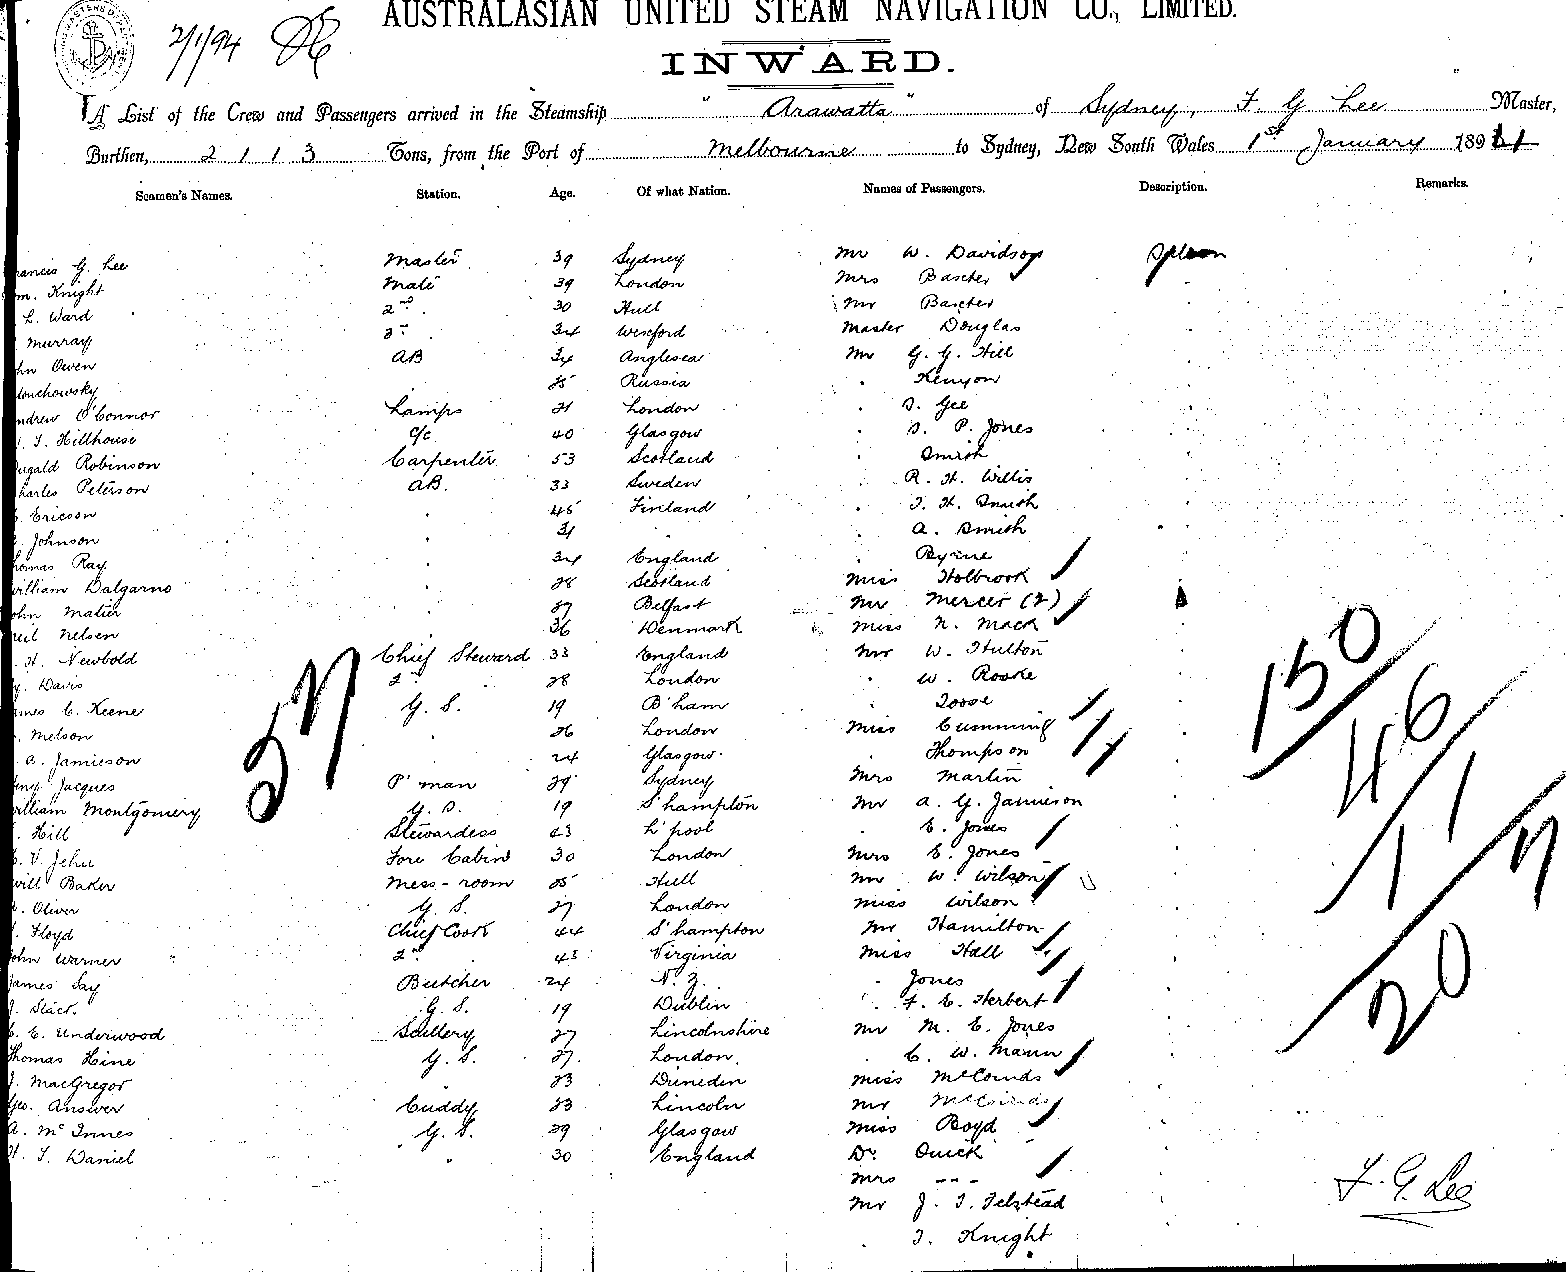 AUSTRALASIAN UNITED STEAM NAVIGATION CO., LIMITED.
2/1/94
INWARD.
A List of the Crew and Passengers arrived in the Steamship "Arawatta" of Sydney, F. G Lee Master,
Burthen, 2113 Tons, from the Port of Melbourne to Sydney, New South Wales 1st January 189
Seamen's Names. Station. Age. Of what Nation. Names of Passengers. Description. Remarks.
rancis G. Lee Master 39 Sydney Mr W. Davidson Saloon
m. Knight Mate 39 London Mrs Baxter
L. Ward 2nd 30 Hull Mr Baxter
Murray 3rd 34 Wexford Master Douglas
hn Owen AB 34 Anglesea Mr G. G. Hill
louchowsky 25 Russia Kenyon
ndrew O'Connor Lamps 21 London Gee
T. Hillhouse c/c 40 Glasgow P. Jones
ugald Robinson Carpenter 53 Scotland Smith
harles Peterson AB. 33 Sweden R. H. Willis
Ericson 45 Finland T. H. Smith
Johnson 31 A. Smith
homas Ray 34 England Byrne
illiam Dalgarno 28 Scotland Miss Holbrook
ohn Matier 27 Belfast Mr Mercer (2)
eil Nelsen 36 Denmark Miss N. Mack
H. Newbold Chief Steward 33 England Mr W. Hulton
Davis 2nd 28 London W. Rooke
ames C. Keene G. S. 19 B'ham Toose
Melson 26 London Miss Cumming
A. Jamieson 24 Glasgow Thompson
eny Jacques P'man 29 Sydney Mrs Martin
illiam Montgomery G. S. 19 S'hampton Mr A. G. Jamieson
Hill Stewardess 43 L'pool E. Jones
V. Jehu Fore Cabin 30 London Mrs E. Jones
will Baker Mess-room 25 Hull Mr W. Wilson
Oliver G. S. 27 London Miss Wilson
Floyd Chief Cook 44 S'hampton Mr Hamilton
ohn Warner 2nd 43 Virginia Miss Hall
James Say Butcher 24 N. Z. Jones
J. Stack G. S. 19 Dublin F. E. Herbert
E. Underwood Scullery 27 Lincolnshire Mr M. E. Jones
Thomas Hine G. S. 27 London C. W. Mann
J. MacGregor 23 Dunedin Miss McCoinds
Geo. Answer Cuddy 23 Lincoln Mr McCoinds
A. McInnes G. S. 29 Glasgow Miss Boyd
H. T. Daniel 30 England Dr. Quick
Mrs ---
Mr J. T. Felstead
T. Knight
37
150
46
11
207
F. G. Lee